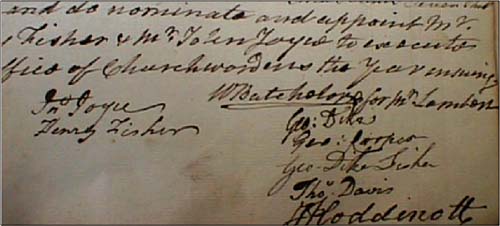 and do nominate and appoint Mr.
Fisher & Mr John Joyce to execute
ffice of Churchwardens the Year ensuing
Jno Joyce
Henry Fisher
W Batchelor for Mr Lambert
Geo: Dike
Geo: Cooper
Geo Dike Fisher
Thos Davis
Hoddinott